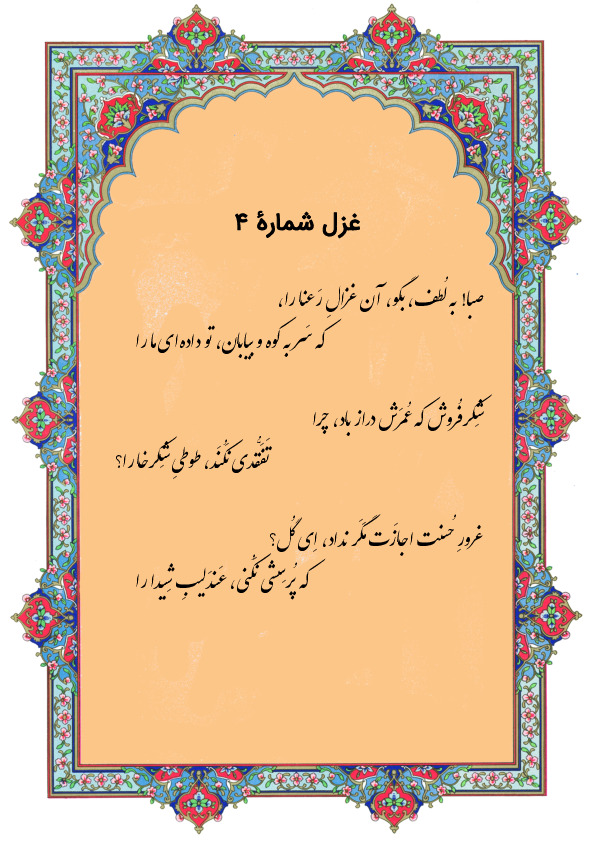 غزل شمارهٔ ۴
صبا! به لُطف، بگو، آن غزالِ رَعنا را،
که سَر به کوه و بیابان، تو داده‌ای ما را
شِکَرفُروش که عُمرَش دراز باد، چرا
تَفَقُّدی نَکُنَد، طوطیِ شِکَرخا را؟
غرورِ حُسنت اجازَت مَگَر نداد، اِی گُل؟
که پُرسِشی نَکُنی، عَندَلیبِ شِیدا را